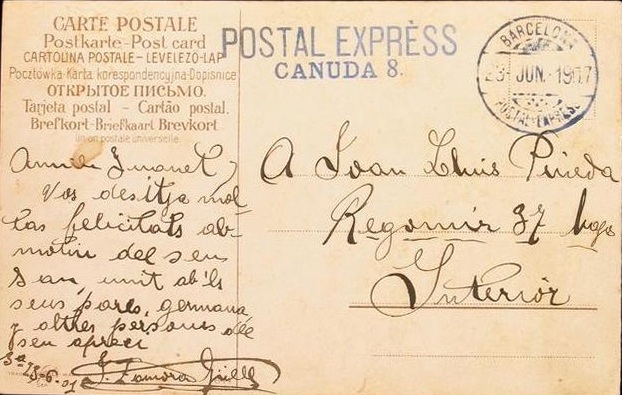 CARTE POSTALE
Postkarte-Post card
CARTOLINA POSTALE-LEVELEZÖ-LAP
Pocztówka-Karta korespondencyjna-Dopisnice
ОТКРЫТОЕ ПИСЬМО.
Tarjeta postal - Cartão postal.
Brefkort-Briefkaart Brevkort
Union postale universelle
POSTAL EXPRÈSS
CANUDA 8.
BARCELONA
23 JUN. 1907
POSTAL-EXPRESS
Amich Juanet
Vos desitja mol
tas felicitats ab
motiu del seu
San, unit ab'ls
seus pares, germana,
y altres persones del
seu apreci
23-6-07
J. Zamora
A Joan Lluis Pineda
Regomir 37
Interior